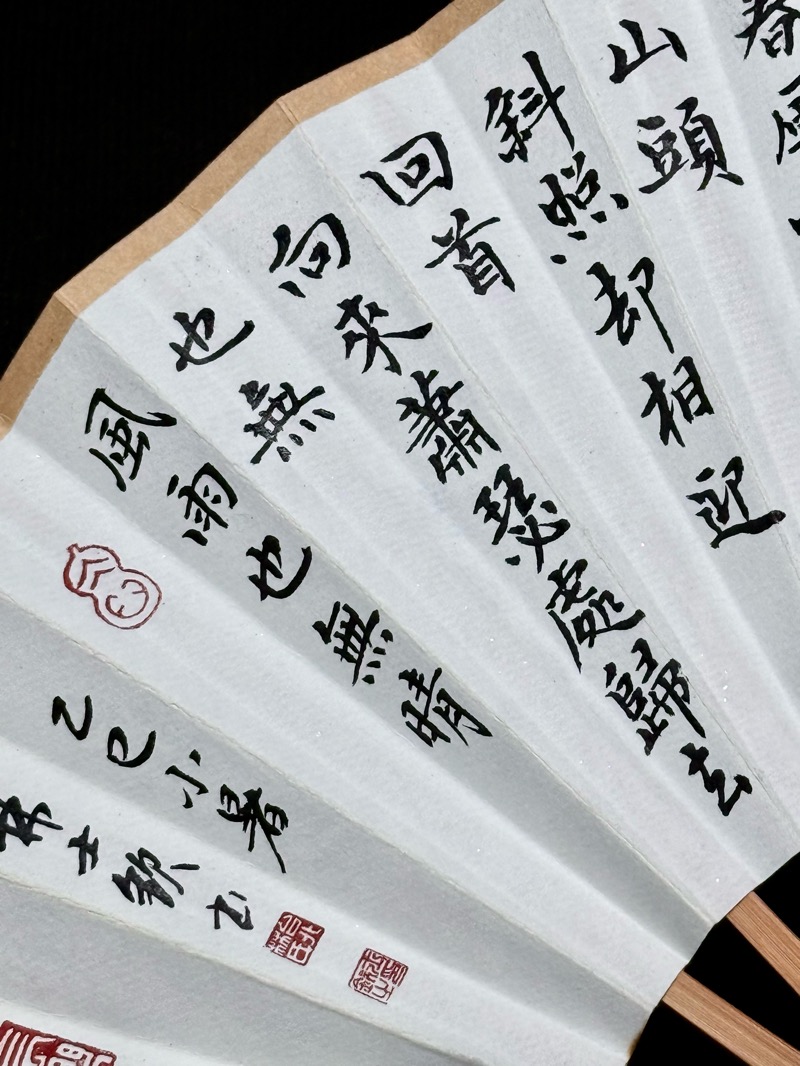 春風
山頭
斜照却相迎
回首
向來蕭瑟處歸去
也無
風雨也無晴
乙巳小暑
士欽书